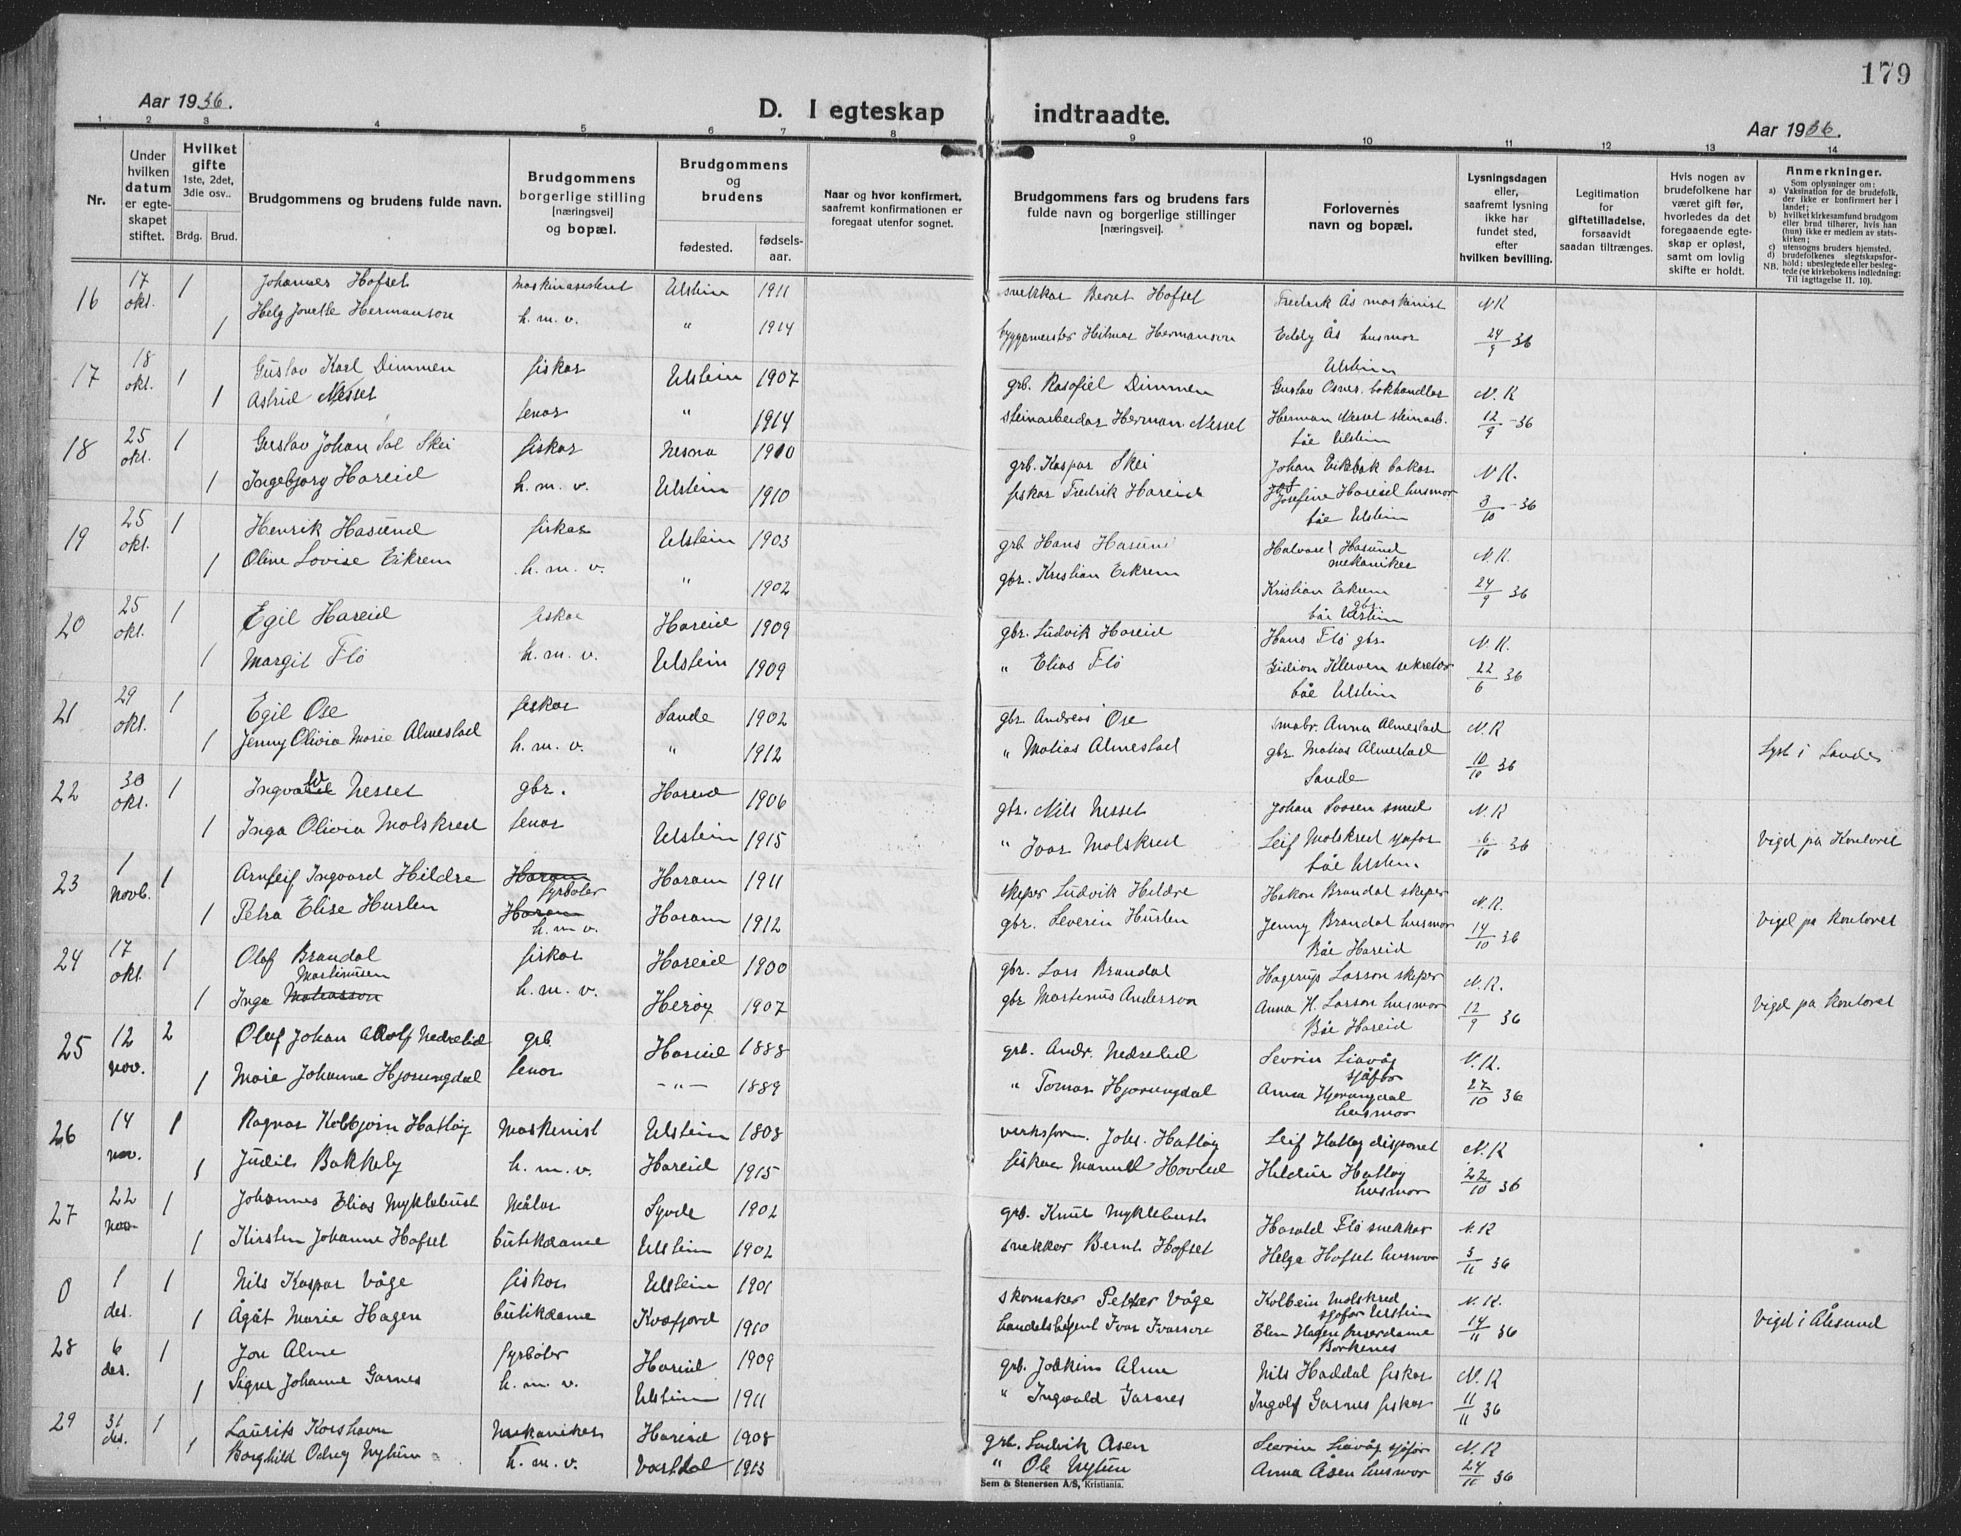 179
Aar 1936.
D. I egteskap indtraadte.
Aar 1936.
1 2 3 4 5 6 7 8 9 10 11 12 13 14
Nr.
Under hvilken datum er egteskapet stiftet.
Hvilket gifte 1ste, 2det, 3die osv..
Brdg. Brud.
Brudgommens og brudens fulde navn.
Brudgommens borgerlige stilling [næringsvei] og bopæl.
Brudgommens og brudens
fødested.
fødselsaar.
Naar og hvor konfirmert, saafremt konfirmationen er foregaat utenfor sognet.
Brudgommens fars og brudens fars fulde navn og borgerlige stillinger [næringsvei].
Forlovernes navn og bopæl.
Lysningsdagen eller, saafremt lysning ikke har fundet sted, efter hvilken bevilling.
Legitimation for giftetilladelse, forsaavidt saadan tiltrænges.
Hvis nogen av brudefolkene har været gift før, hvorledes da det foregaaende egteskap er opløst, samt om lovlig skifte er holdt.
Anmerkninger.
Som oplysninger om:
a) Vaksination for de brudefolk, der ikke er konfirmert her i landet;
b) hvilket kirkesamfund brudgom eller brud tilhører, hvis han (hun) ikke er medlem av statskirken;
c) utensogns bruders hjemsted.
d) brudefolkenes slegtskapsforhold: ubeslegtede eller beslegtede (se kirkebokens indledning: Til iagttagelse 11. 10).
NB.
16 17 okt. 1 Johannes Hofset maskinasistent Ulstein 1911 snekkar Bernt Hofset Fredrik Ås maskinist N. K
1 Helg Jonette Hermanson h. m. v. " 1914 byggemeister Hilmar Hermanson Eddy Ås husmor Ulstein 24/9 36
17 18 okt. 1 Gustav Karl Dimmen fiskar Ulstein 1907 grb. Rasofiel Dimmen Gustav Osnes bokhandlar N. K
1 Astrid Nesset tenar " 1914 steinarbeidar Herman Nesset Herman Nesset steinarb. båe Ulstein 12/9 -36
18 25 okt. 1 Gustav Johan Sal Skei fiskar Nesna 1910 grb. Kaspar Skei Johan Eikbak bakar N. K.
1 Ingebjørg Hareid h. m. v. Ulstein 1910 fiskar Fredrik Hareid Josefine Hareid husmor båe Ulstein 3/10 -36
19 25 okt. 1 Henrik Hasund fiskar Ulstein 1903 grb Hans Hasund Halvard Hasund mekaniker N. K.
1 Oline Lovise Eikrem h. m. v. " 1902 gbr. Kristian Eikrem Kristian Eikrem gbr. båe Ulstein 24/9 36
20 25 okt. 1 Egil Hareid fiskar Hareid 1909 gbr. Ludvik Hareid Hans Flø gbr. N. K.
1 Margit Flø h. m. v. Ulstein 1909 " Elias Flø Gidion Kleven sekretær båe Ulstein 22/6 36
21 29 okt. 1 Egil Ose fiskar Sande 1902 gbr. Andreas Ose småbr. Anna Almestad N. K
1 Jenny Olivia Marie Almestad h. m. v. " 1912 " Matias Almestad gbr Matias Almestad Sande 10/10 36 Lyst i Sande
22 30 okt. 1 Ingvald Nesset gbr. Hareid 1906 gbr. Nils Nesset Johan Svoren smed N. K
1 Inga Olivia Molskred tenar Ulstein 1915 " Ivar Molskred Leif Molskred sjøfor båe Ulstein 6/10 36 Vigd på Kontoret
23 1 novb. 1 Arnleif Ingvard Hildre Haram fyrbøter Haram 1911 skiper Ludvik Hildre Håkon Brandal skiper N. K.
1 Petra Elise Hurlen Haram h. m. v. Haram 1912 gbr. Severin Hurlen Jenny Brandal husmor Båe Hareid 14/10 36 Vigd på kontoret
24 17 okt. 1 Olaf Brandal fiskar Hareid 1900 gbr. Lars Brandal Hagerup Larson skiper N. K.
1 Inga Matiasson Martinusen h. m. v. Herøy 1907 gbr Martinus Anderson Anna H. Larson husmor Båe Hareid 12/9 36 Vigd på kontoret
25 12 nov. 2 Olaf Johan Adolf Nedrelid grb. Hareid 1888 grb. Andr. Nedrelid Sevrin Liavåg sjåfør N. K.
1 Marie Johanne Hjørungdal tenar -"- 1889 " Tomas Hjørungdal Anna Hjørungdal husmor 27/10 36
26 14 nov. 1 Ragnar Kolbjørn Hatløy Maskinist Ulstein 1808 verksform. Johs. Hatløy Leif Hatløy disponet N. K
1 Judit Bakkeby h. m. v. Hareid 1915 fiskar Manuel Hovlid Hildur Hatløy husmor 22/10 36
27 22 nov 1 Johannes Elias Myklebust Målar Syvde 1902 grb. Knut Myklebust Harald Flø snekkar N. K
1 Kirsten Johanne Hofset butikdame Ulstein 1902 snekkar Bernt Hofset Helga Hofset husmor 3/11 36
0 1 des. 1 Nils Kaspar Våge fiskar Ulstein 1901 skomaker Petter Våge Kolbein Molskred sjofør Ulstein N. K.
1 Ågåt Marie Hagen butikdame Kvæfjord 1910 handelsbegent Ivar Ivarson Elen Hagen friserdame Borkenes 14/11 36 Vigd i Ålesund
28 6 des. 1 Jon Alme fyrbøter Hareid 1909 grb. Joakim Alme Nils Haddal fiskar N. K
1 Signe Johanne Garnes h. m. v. Ulstein 1911 " Ingvald Garnes Ingolf Garnes fiskar 11/11 36
29 31 des. 1 Laurits Korshavn Maskaniker Hareid 1908 grb. Ludvik Åsen Sevrin Liavåg sjåfør N. K
1 Borghild Odny Nytun h. m. v. Vartdal 1913 " Ole Nytun Anna Åsen husmor 24/11 36
Sem & Stenersen A/S, Kristiania.